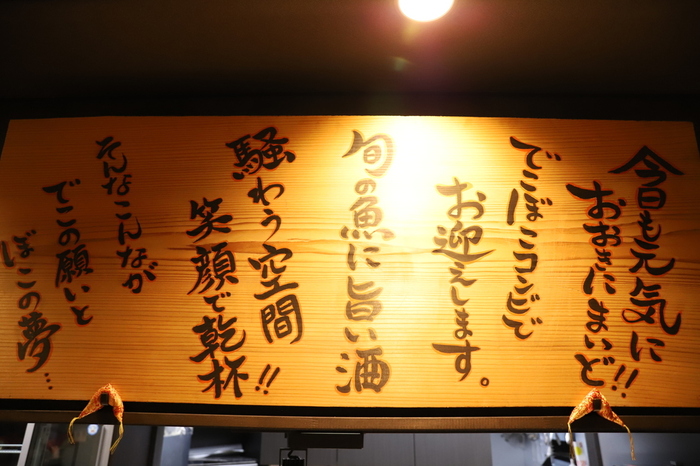 今日も元気に
おおきにまいど!!
でこぼこコンビで
お迎えします。
旬の魚に旨い酒
騒わう空間
笑顔で乾杯!!
そんなこんなが
でこの願いと
ぼこの夢…